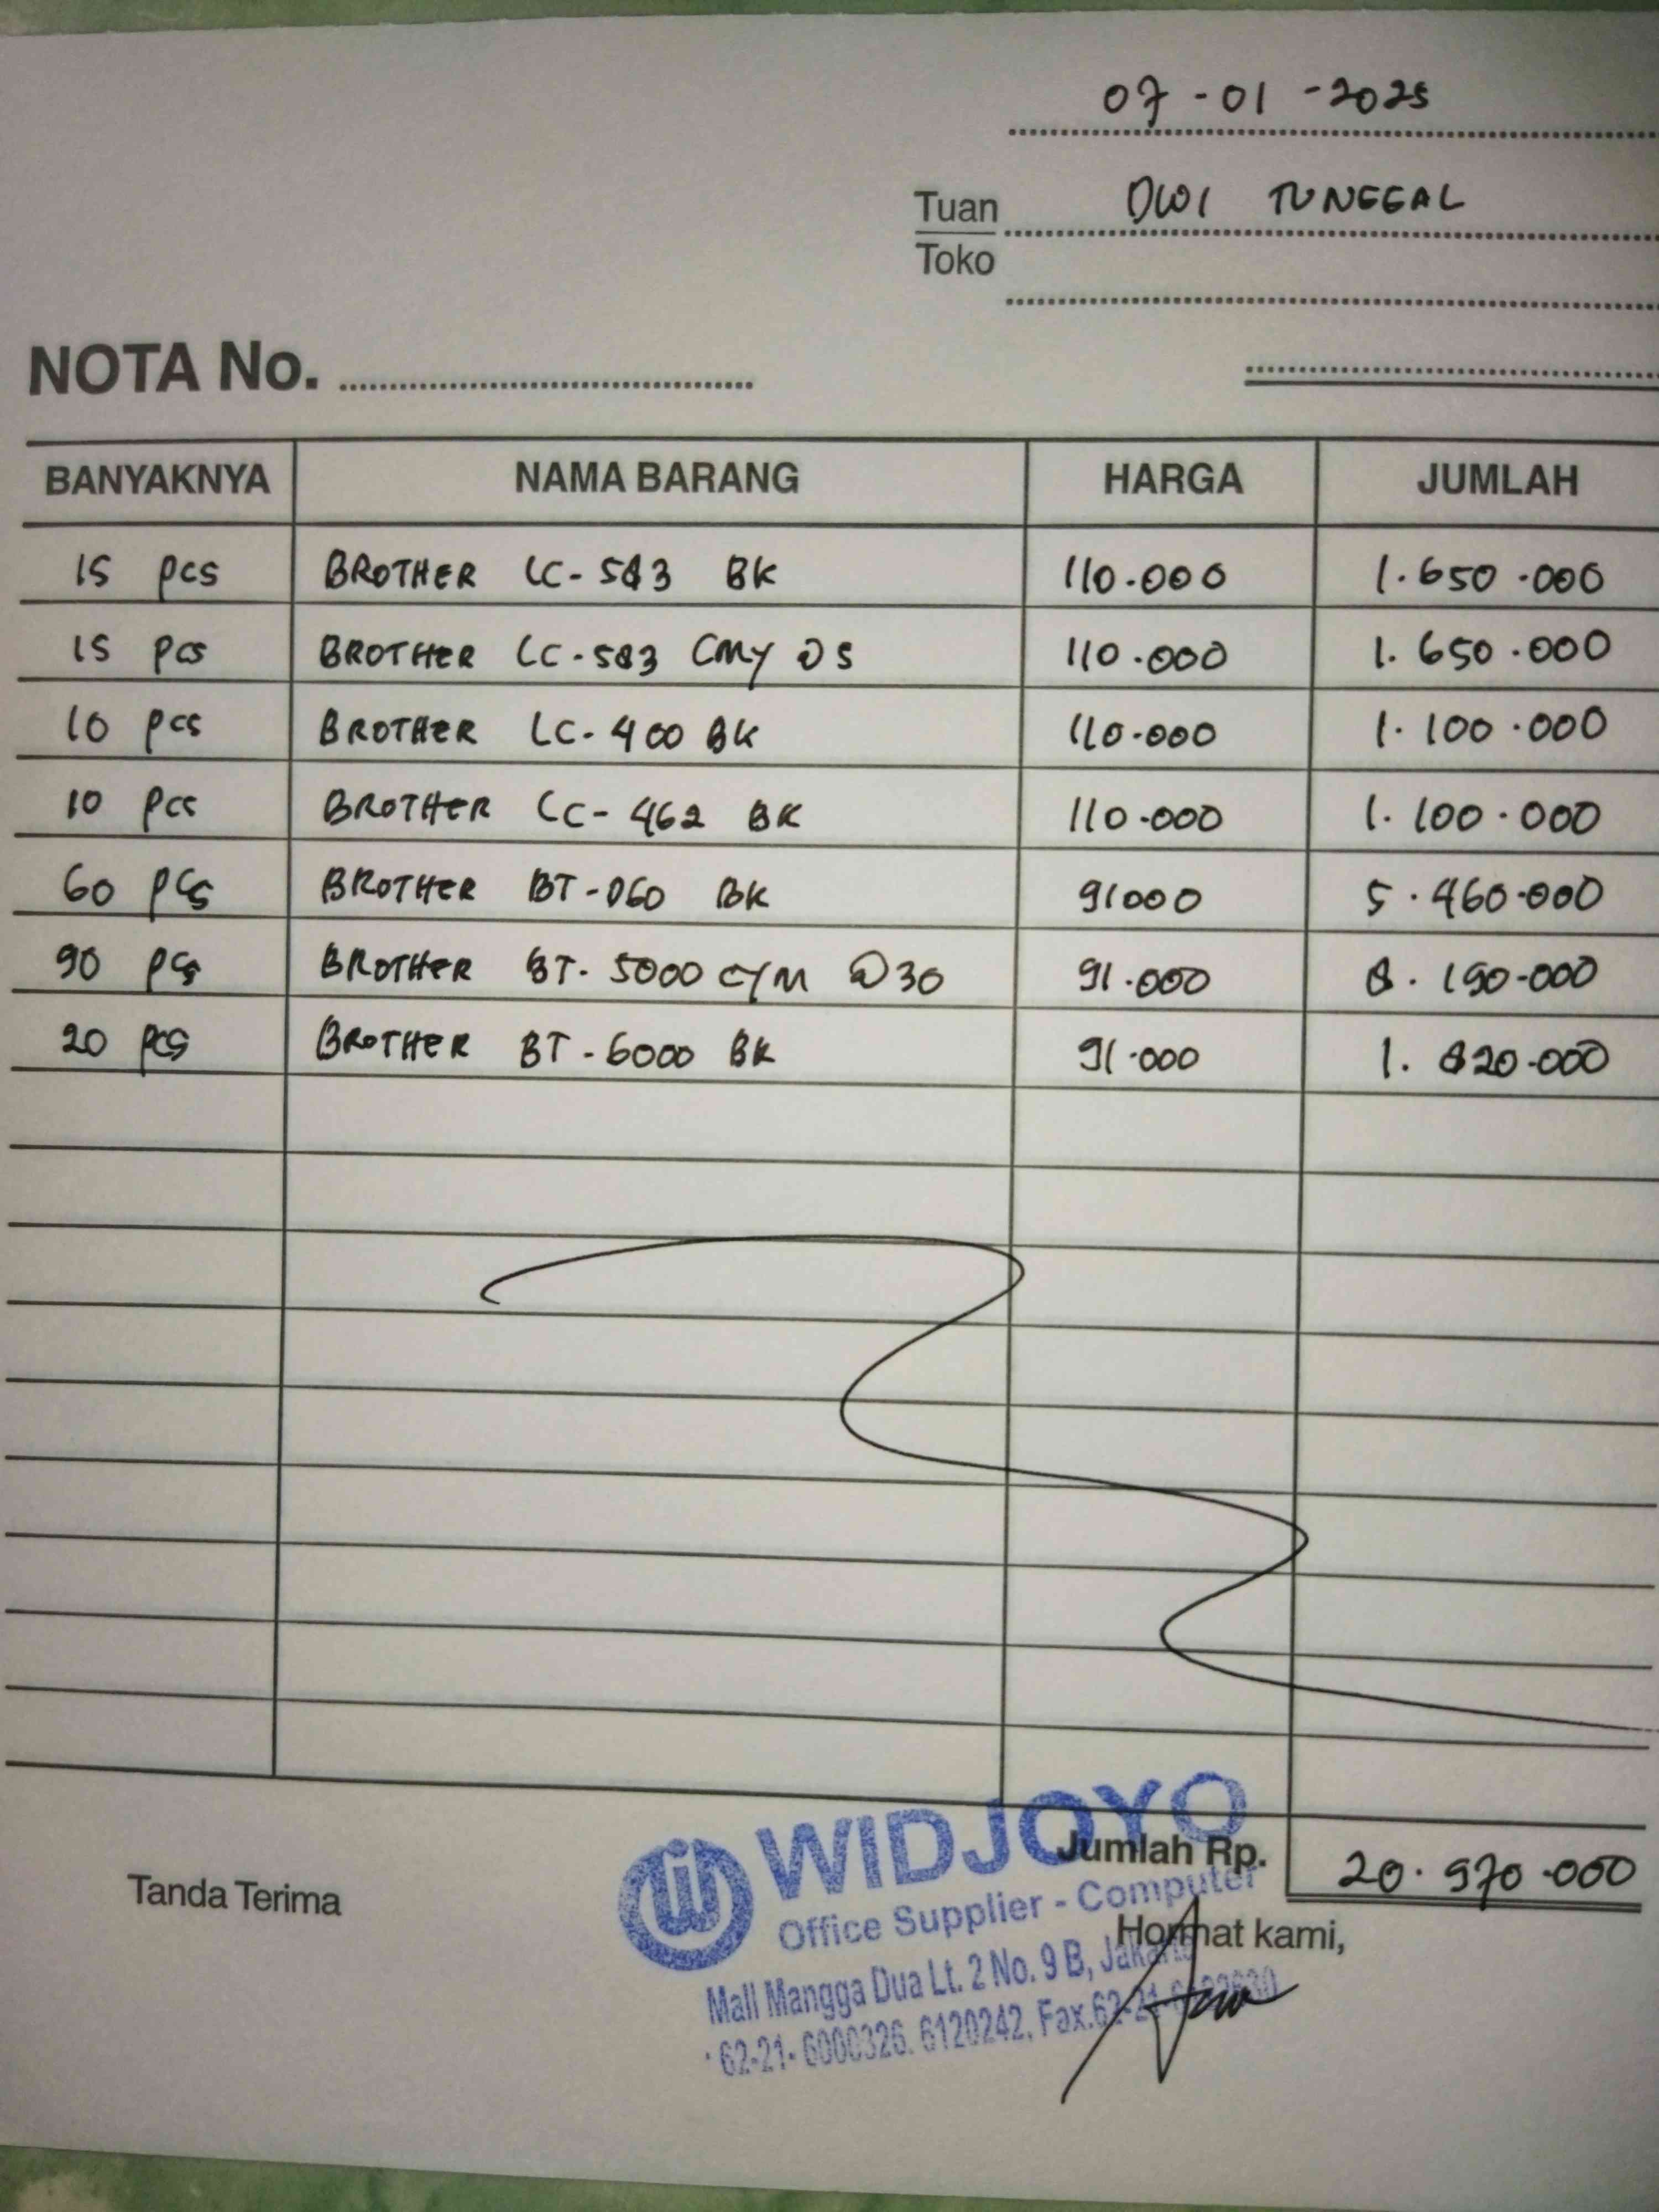 07-01-2025
Tuan DWI TUNGGAL
Toko
NOTA No.
BANYAKNYA NAMA BARANG HARGA JUMLAH
15 pcs BROTHER LC-583 BK 110.000 1.650.000
15 pcs BROTHER LC-583 CMY @5 110.000 1.650.000
10 pcs BROTHER LC-400 BK 110.000 1.100.000
10 pcs BROTHER LC-462 BK 110.000 1.100.000
60 pcs BROTHER BT-D60 BK 91000 5.460.000
90 pcs BROTHER BT-5000 C/M @30 91.000 8.190.000
20 pcs BROTHER BT-6000 BK 91.000 1.820.000
WIDJOYO
Jumlah Rp. 20.970.000
Tanda Terima
Office Supplier - Computer
Hormat kami,
Mall Mangga Dua Lt. 2 No. 9 B, Jakarta
62-21-6000326. 6120242, Fax.62-21-